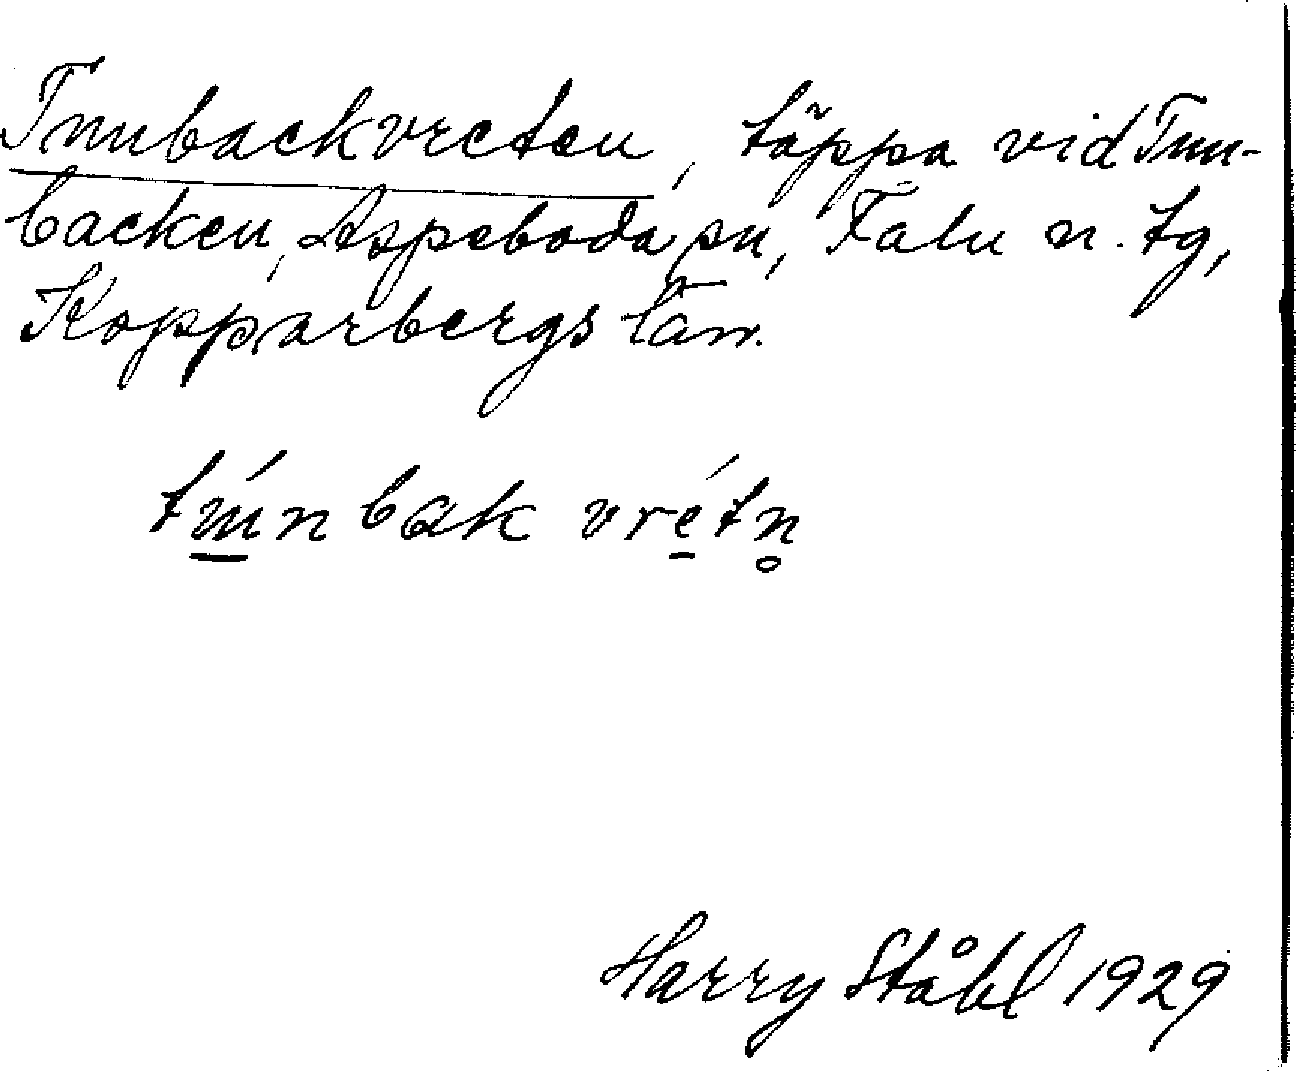 Tunbackvreten, täppa vid Tun-
backen, Aspeboda sn, Falu n. tg,
Kopparbergs län.
bak vrétn̥
Harry Ståhl 1929